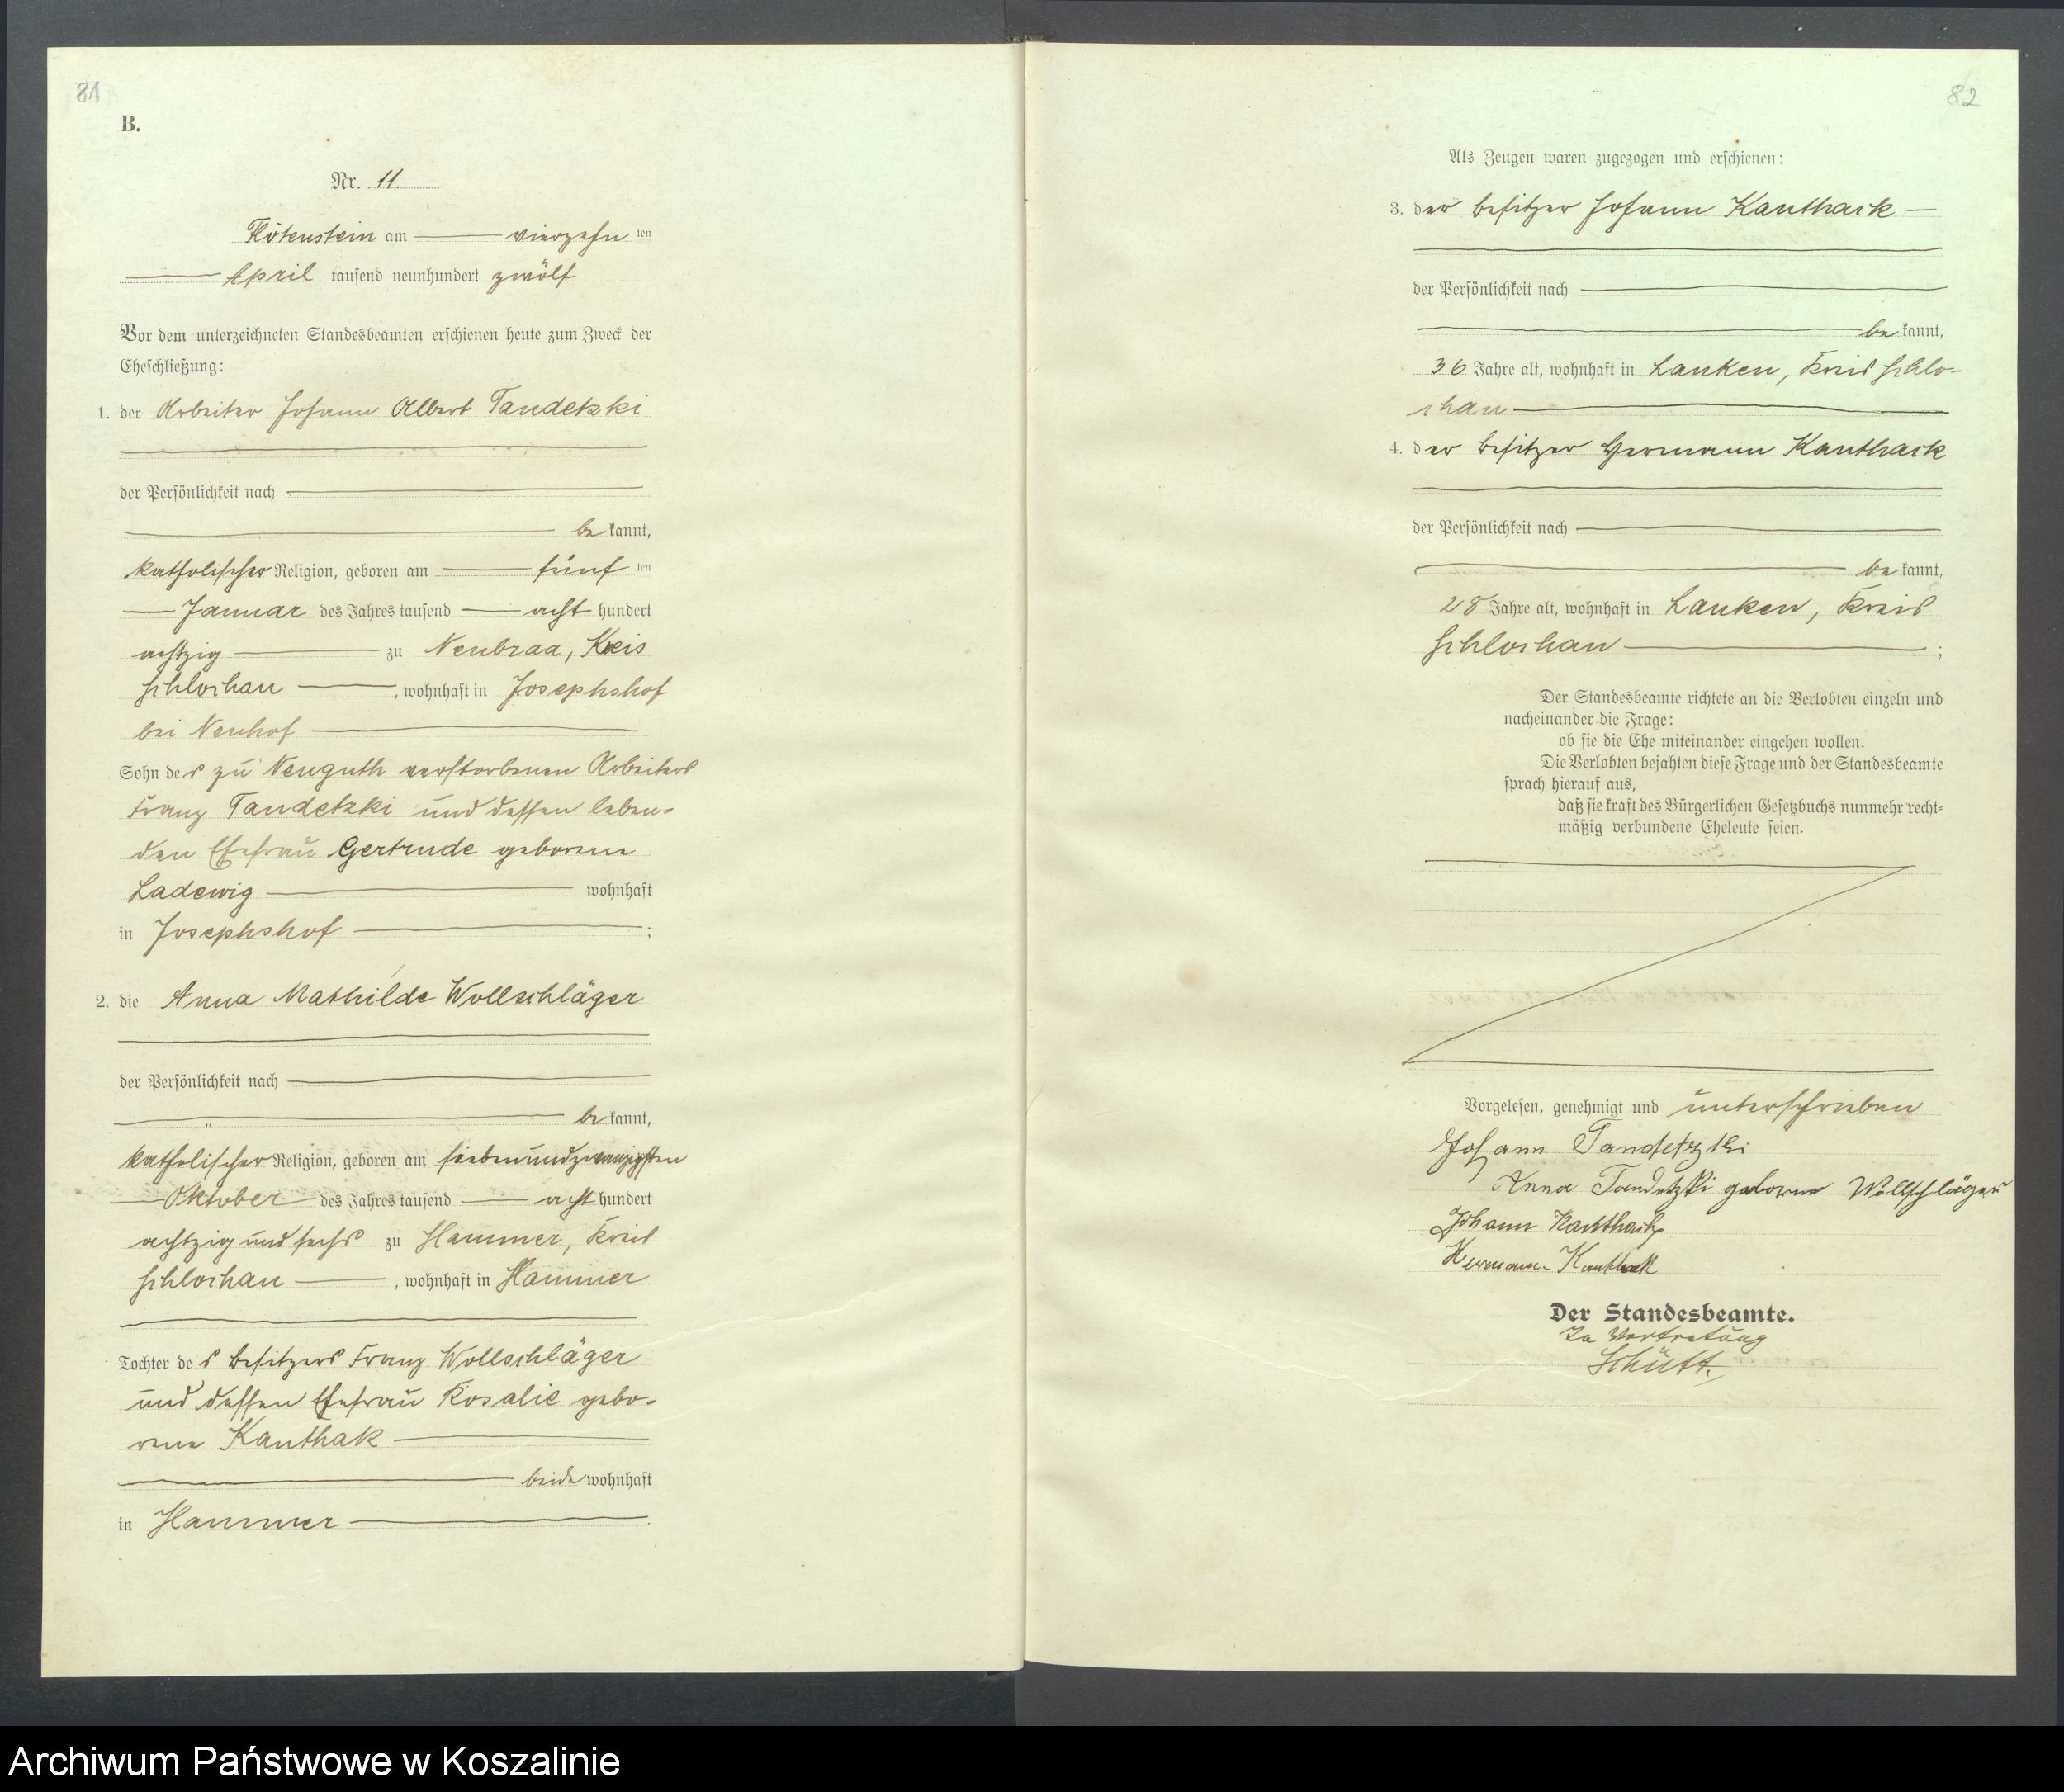 81
B.
Nr. 11.
Flötenstein am vierzehn ten
April tausend neunhundert zwölf
Vor dem unterzeichneten Standesbeamten erschienen heute zum Zweck der
Eheschließung:
1. der Arbeiter Johann Albert Tandetzki
der Persönlichkeit nach
be kannt,
katholischer Religion, geboren am fünf ten
Januar des Jahres tausend acht hundert
achtzig zu Neubraa, Kreis
Schlochau, wohnhaft in Josephshof
bei Neuhof
Sohn des zu Neuguth verstorbenen Arbeiters
Franz Tandetzki und dessen leben-
den Ehefrau Gertrude geborene
Ladewig wohnhaft
in Josephshof ;
2. die Anna Mathilde Wollschläger
der Persönlichkeit nach
be kannt,
katholischer Religion, geboren am siebenundzwanzigsten
Oktober des Jahres tausend acht hundert
achtzig und sechs zu Hammer, Kreis
Schlochau, wohnhaft in Hammer
Tochter des Besitzers Franz Wollschläger
und dessen Ehefrau Rosalie gebo-
rene Kanthak
beide wohnhaft
in Hammer .
82
Als Zeugen waren zugezogen und erschienen:
3. der Besitzer Johann Kanthack
der Persönlichkeit nach
be kannt,
36 Jahre alt, wohnhaft in Lanken, Kreis Schlo-
chau
4. der Besitzer Hermann Kanthack
der Persönlichkeit nach
be kannt,
28 Jahre alt, wohnhaft in Lanken, Kreis
Schlochau ;
Der Standesbeamte richtete an die Verlobten einzeln und
nacheinander die Frage:
ob sie die Ehe miteinander eingehen wollen.
Die Verlobten bejahten diese Frage und der Standesbeamte
sprach hierauf aus,
daß sie kraft des Bürgerlichen Gesetzbuchs nunmehr recht-
mäßig verbundene Eheleute seien.
Vorgelesen, genehmigt und unterschrieben
Johann Tandetzki
Anna Tandetzki geborene Wollschläger
Johann Kanthack
Hermann Kanthack
Der Standesbeamte.
In Vertretung
Schütt.
Archiwum Państwowe w Koszalinie